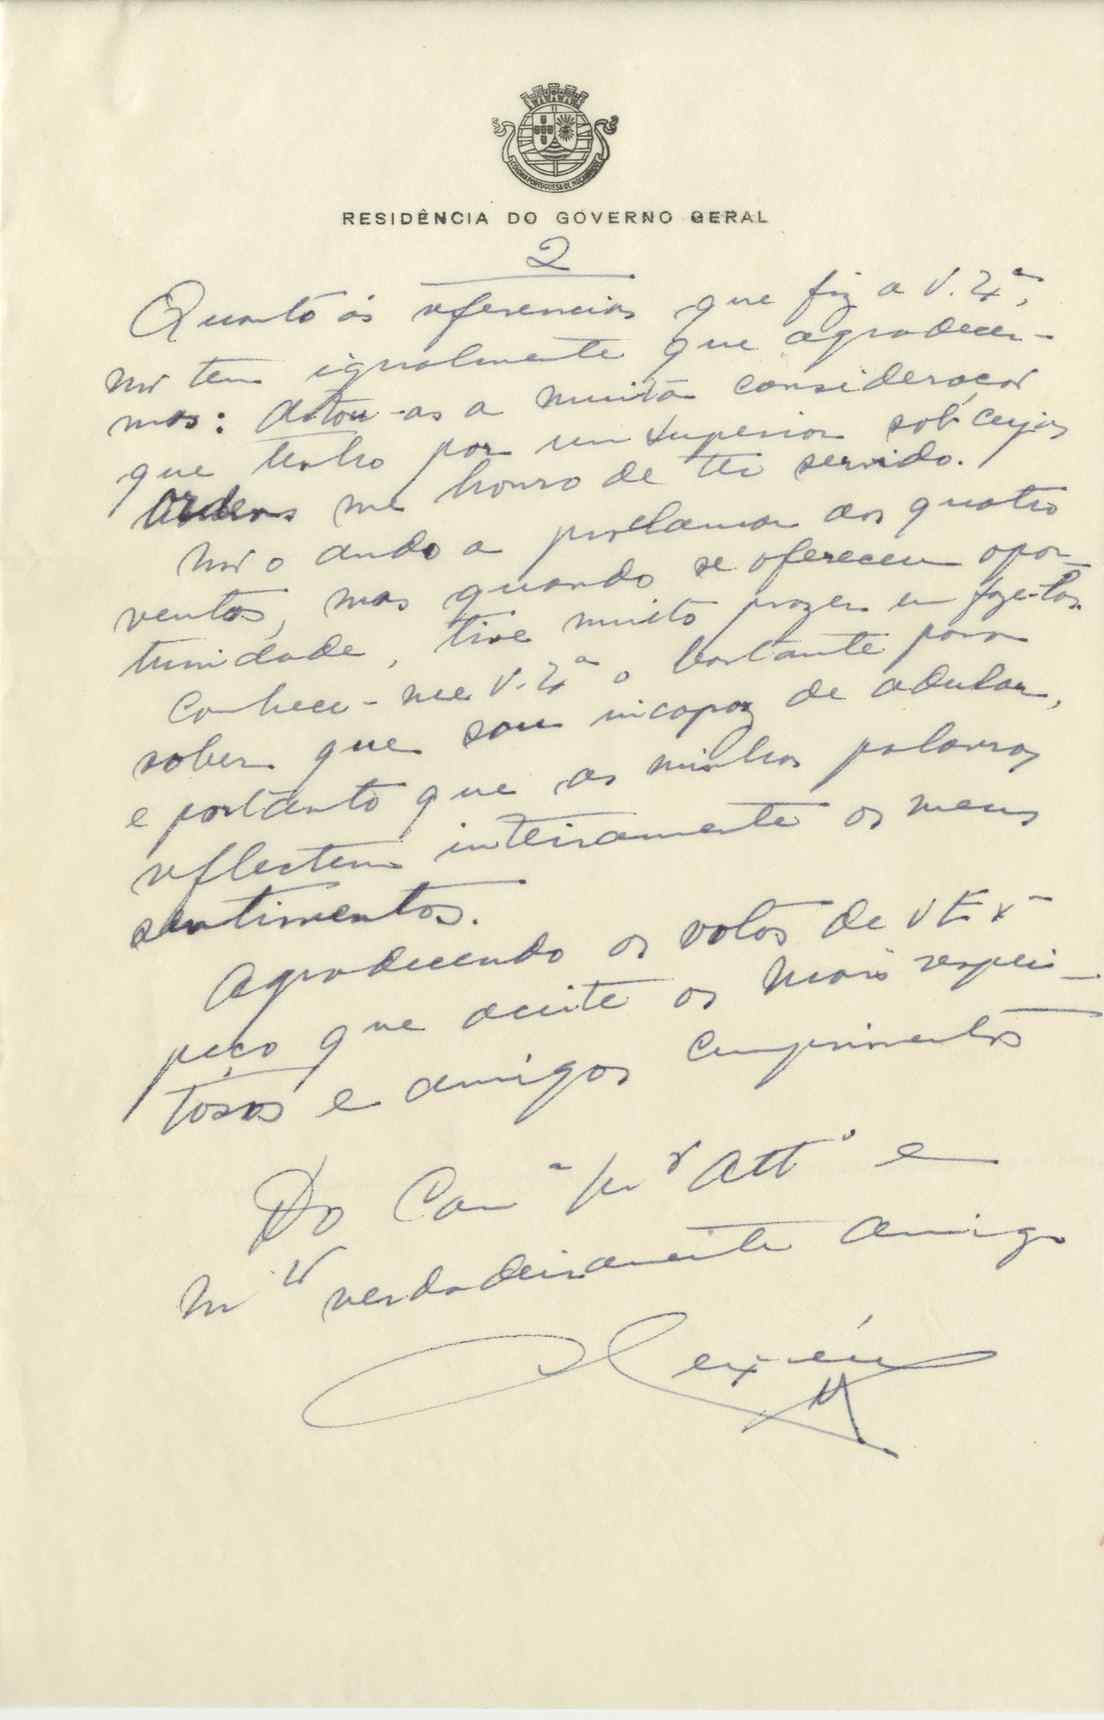 COLONIA PORTUGUESA DE MOÇAMBIQUE
RESIDÊNCIA DO GOVERNO GERAL
2
Quanto ás referencias que fiz a V. Exª,
não tem igualmente que agradecer-
mas: ditou-as a muita consideração
que tenho por um superior sob cujas
ordens me honro de ter servido.
Não ando a proclama-la aos quatro
ventos, mas quando se ofereceu opor-
tunidade, tive muito prazer em faze-lo.
Conhece-me V. Exª o bastante para
saber que sou incapaz de adular,
e portanto que as minhas palavras
reflectem inteiramente os meus
sentimentos.
Agradecendo os votos de V Exª
peço que aceite os mais respei-
tosos e amigos cumprimentos
Do Camª mto Attº e
mto verdadeiramente amigo